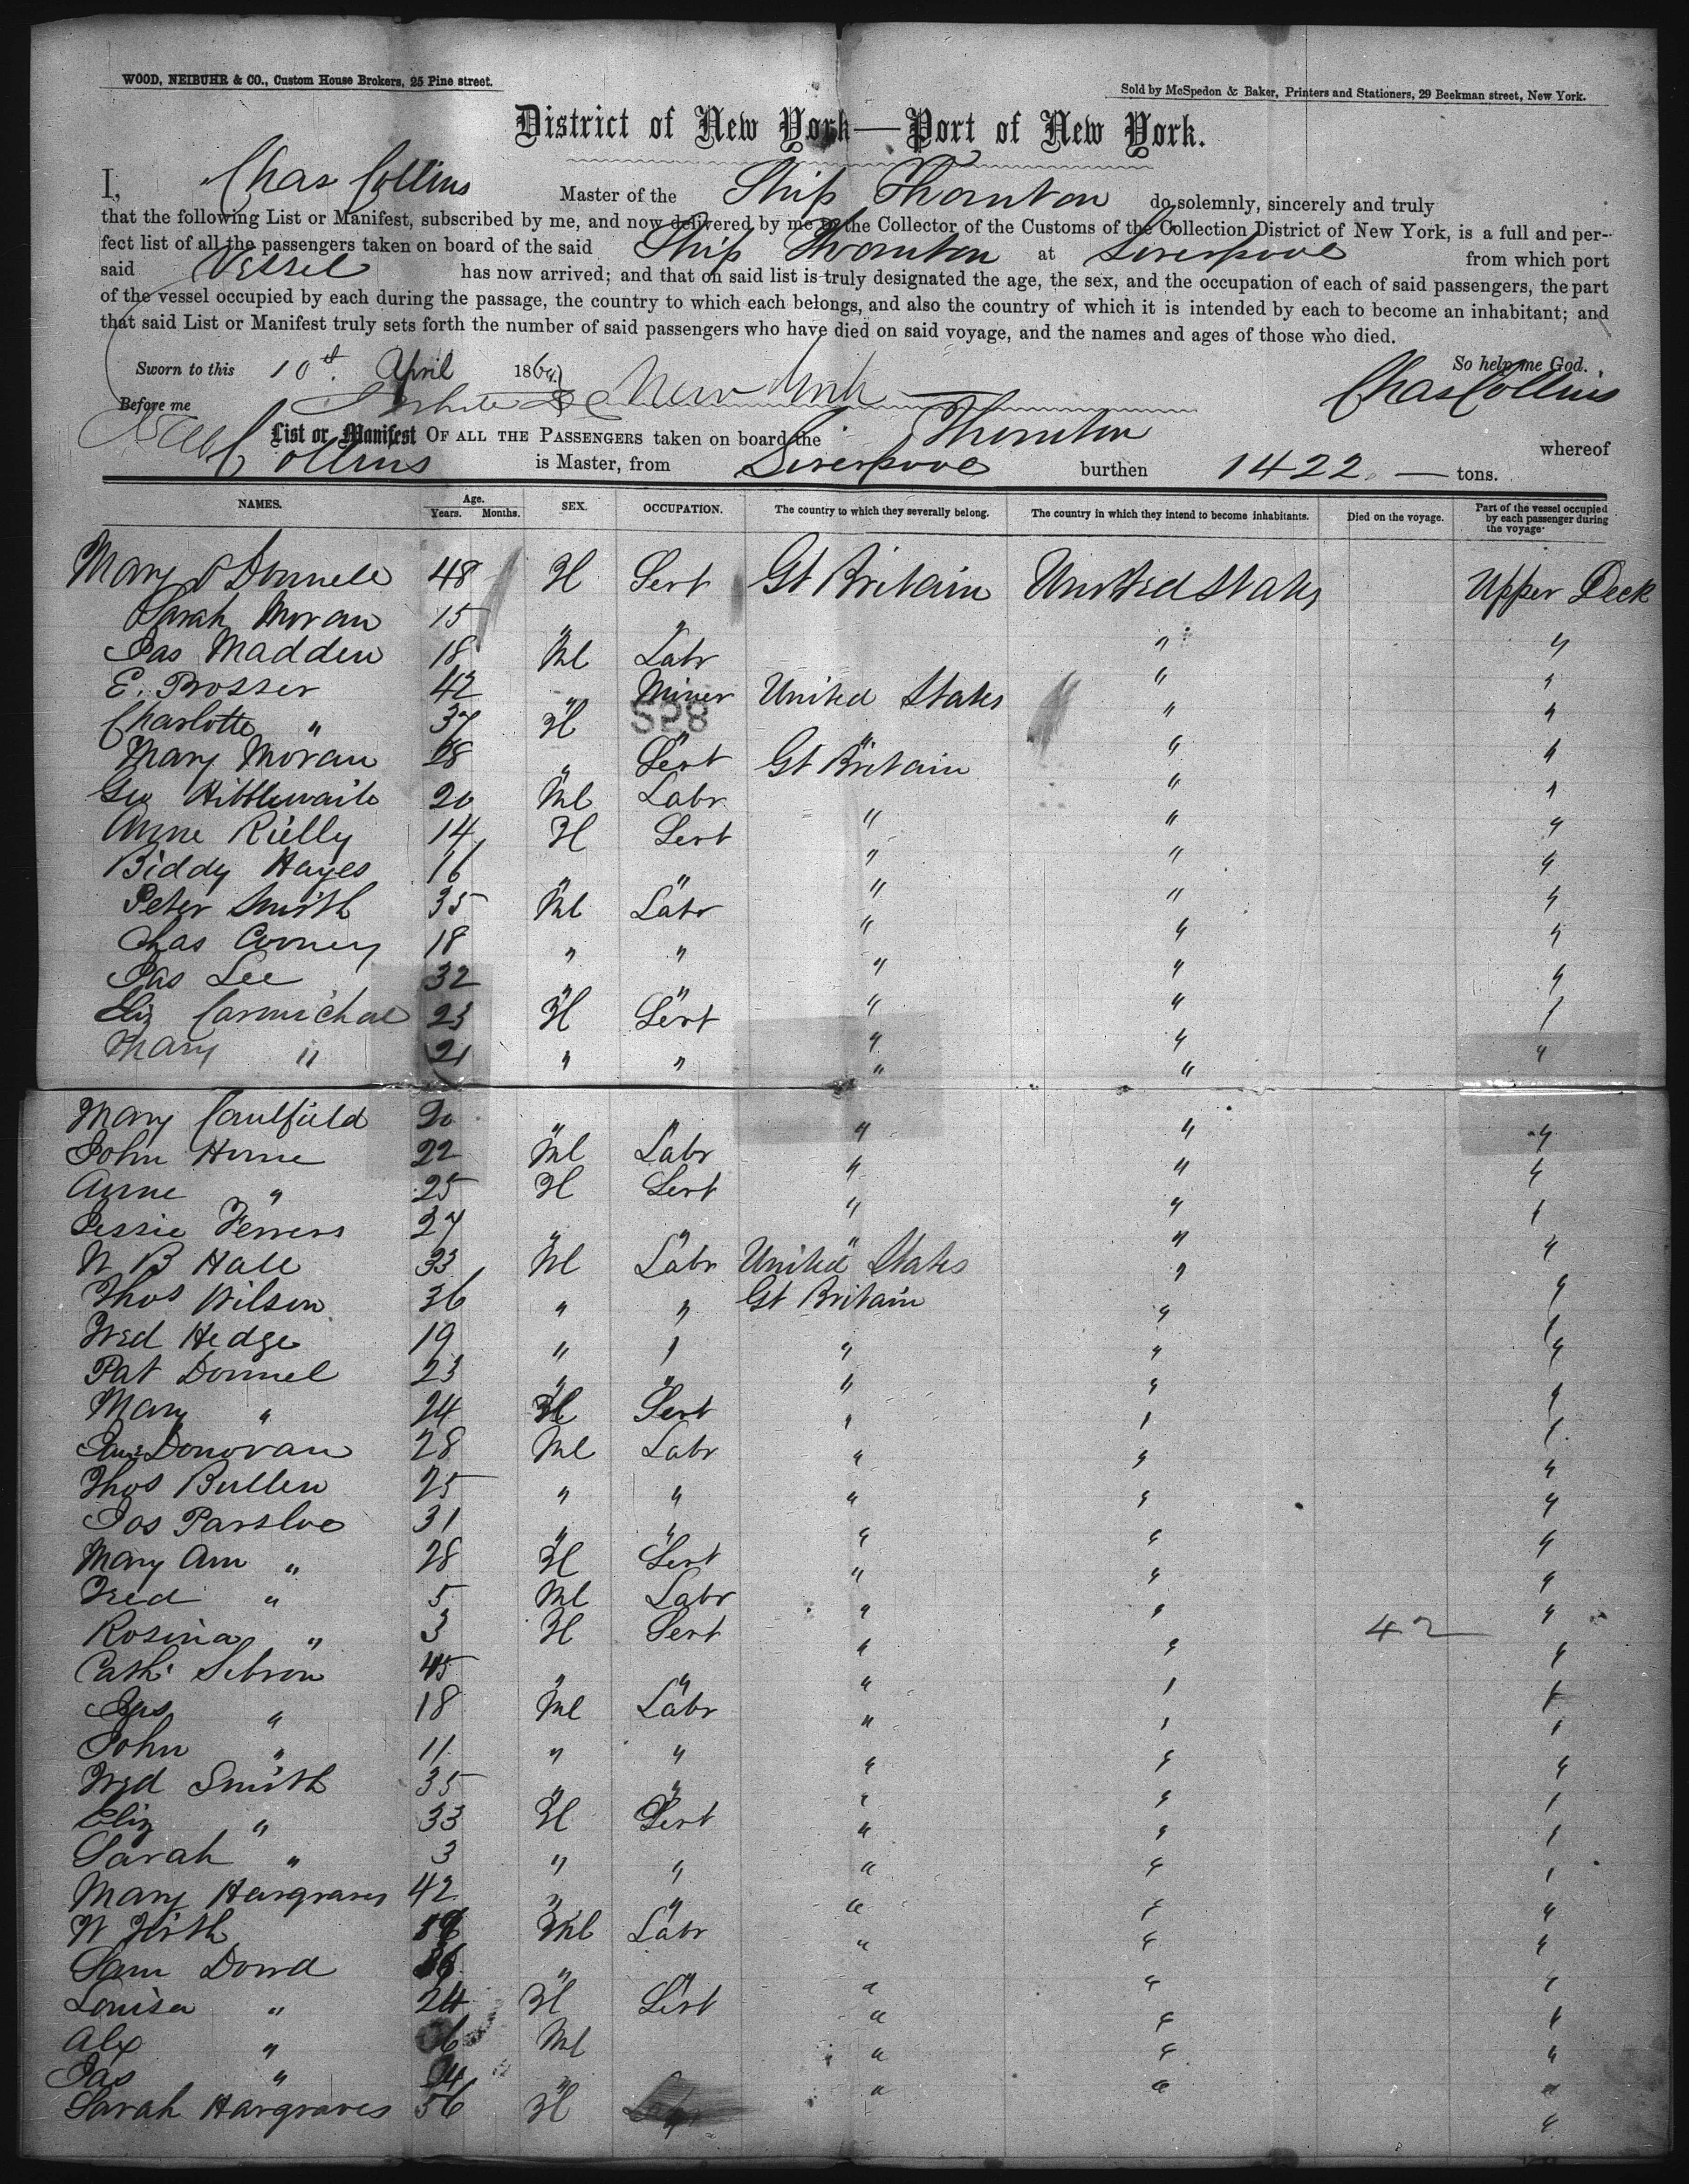 WOOD, NEIBUHR & CO., Custom House Brokers, 25 Pine street.
Sold by McSpedon & Baker, Printers and Stationers, 29 Beekman street, New York.
District of New York—Port of New York.
I, Chas Collins Master of the Ship Thornton do solemnly, sincerely and truly
that the following List or Manifest, subscribed by me, and now delivered by me to the Collector of the Customs of the Collection District of New York, is a full and per-
fect list of all the passengers taken on board of the said Ship Thornton at Liverpool from which port
said Vessel has now arrived; and that on said list is truly designated the age, the sex, and the occupation of each of said passengers, the part
of the vessel occupied by each during the passage, the country to which each belongs, and also the country of which it is intended by each to become an inhabitant; and
that said List or Manifest truly sets forth the number of said passengers who have died on said voyage, and the names and ages of those who died.
Sworn to this 10th April 186 So help me God.
Before me New York Chas Collins
List or Manifest OF ALL THE PASSENGERS taken on board the Thornton whereof
Collins is Master, from Liverpool burthen 1422 — tons.
NAMES. Age. Years. Months. SEX. OCCUPATION. The country to which they severally belong. The country in which they intend to become inhabitants. Died on the voyage. Part of the vessel occupied by each passenger during the voyage.
Mary O Donnell 48 F Servt Gt Britain United States Upper Deck
Sarah Moran 15 " " " "
Jas Madden 18 Ml Labr " "
E. Prosser 42 " Miner United States " "
Charlotte " 37 F " " " "
SP8
Mary Moran 28 " Servt Gt Britain " "
Geo Hibblewaite 20 Ml Labr " " "
Anne Rielly 14 F Servt " " "
Biddy Hayes 16 " " " " "
Peter Smith 35 Ml Labr " " "
Chas Corney 18 " " " " "
Jas Lee 32 " " " " "
Eliz Carmichael 23 F Servt " " "
Mary " 21 " " " " "
Mary Caulfield 20 " " " " "
John Horne 22 Ml Labr " " "
Anne " 25 F Servt " " "
Jessie Ferrers 27 " " " " "
W B Hall 33 Ml Labr United States " "
Thos Wilson 36 " " Gt Britain " "
Wed Hedge 19 " " " " "
Pat Donnel 23 " " " " "
Mary " 24 F Servt " " "
Donovan 28 Ml Labr " " "
Thos Bullen 25 " " " " "
Jos Parsloe 31 " " " " "
Mary Ann " 28 F Servt " " "
Fred " 5 Ml Labr " " "
Rosina " 3 F Servt " " 42 "
Cath Sebron 45 " " " " "
" 18 Ml Labr " " "
John " 11 " " " " "
Wed Smith 35 " " " " "
Eliz " 33 F Servt " " "
Sarah " 3 " " " " "
Mary Hargraves 42 " " " " "
W Firth Ml Labr " " "
Sam Dowd 36 " " " " "
Louisa " 24 F Servt " " "
Alex " 6 Ml " " "
Jas " 4 " " " "
Sarah Hargraves 56 F " "